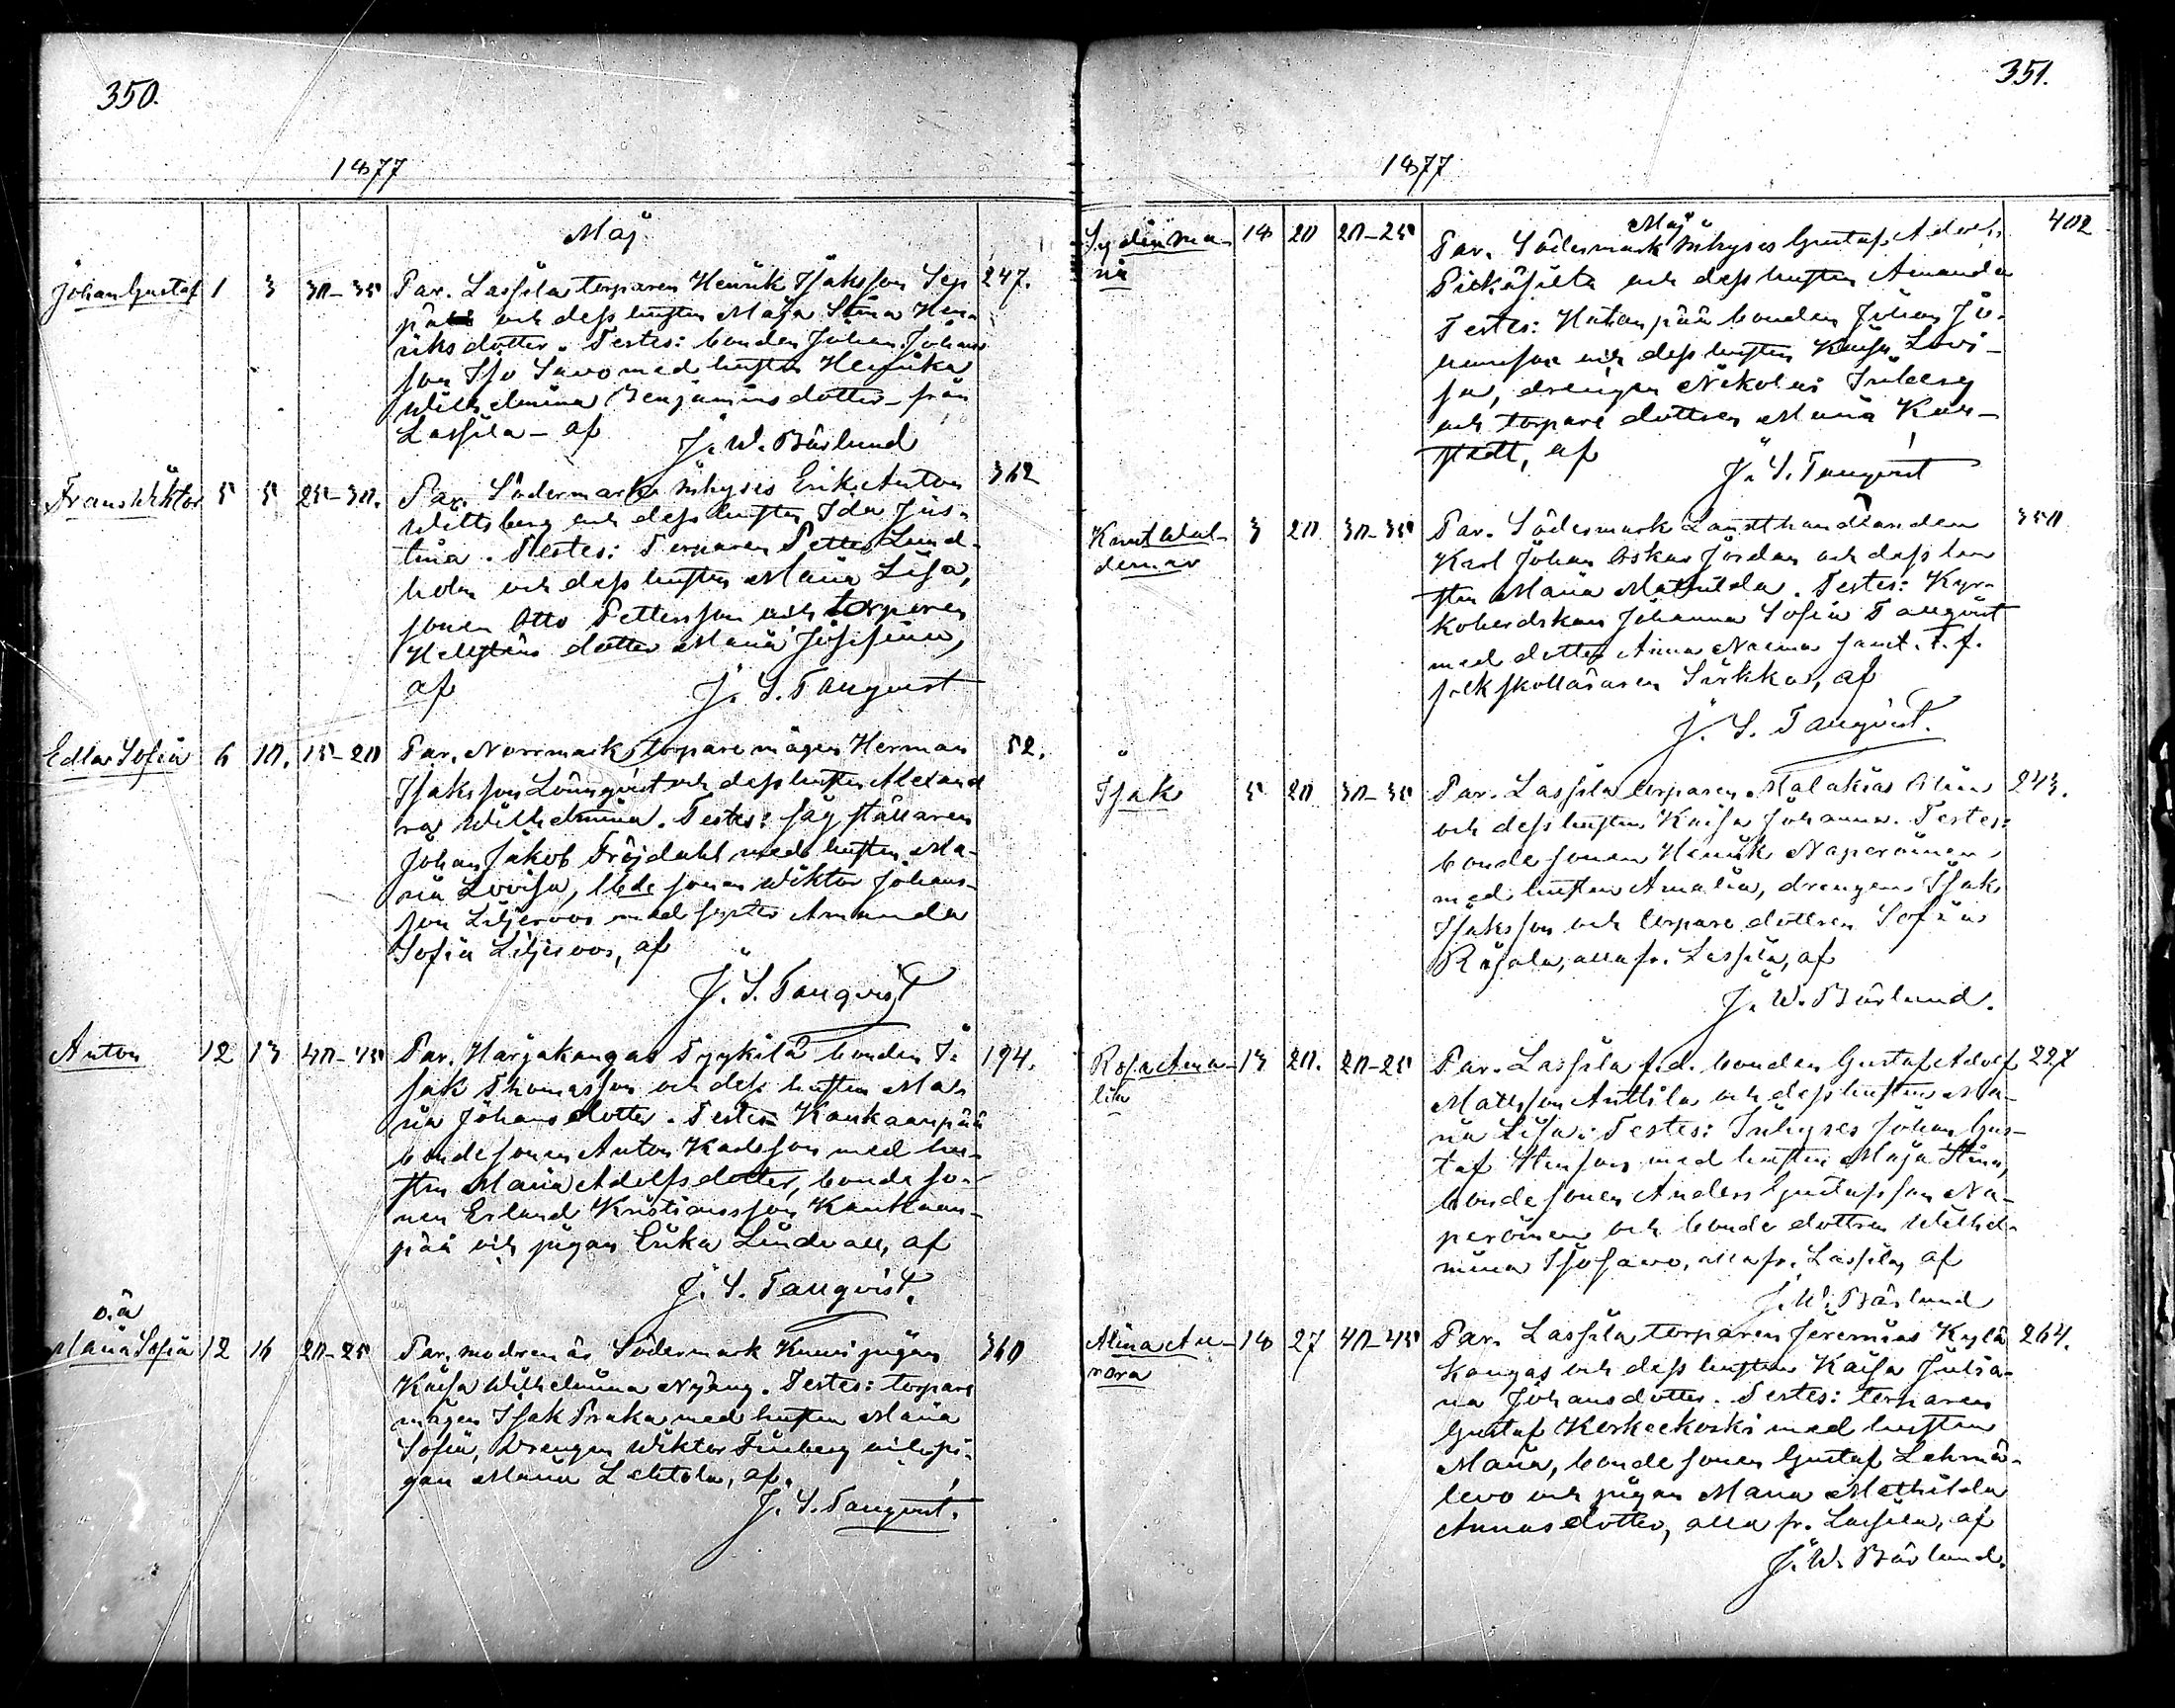 350.
1877
Maj
Johan Gustaf 1 3 30-35 Par. Lassila torparen Henrik Isaksson Sep 247.
och dess hustru Maja Stina Hen-
riks dotter. Testes: bonden Johan Johans
son Iso Savo med hustru Henrika
Wilhelmina Benjamins dotter från
Lassila - af
J. W. Bärlund
Frans Wiktor 5 5 25-30. Par. Södermark inhyses Erik Anton 362
Wittsberg och dess hustru Ida Jus-
tina. Testes: Torparen Petter Lund-
holm och dess hustru Maria Lisa,
sonen Otto Pettersson och torparen
Hellsténs dotter Maria Josefina,
af
J. S. Tanqvist
Edla Sofia 6 10. 15-20 Par. Norrmark torpare mågen Herman 52.
Isaksson Lönnqvist och dess hustru Alexand
ra Wilhelmina. Testes: såg ställaren
Johan Jakob Fröjdahl med hustru Ma-
ria Lovisa, bde sonen Wiktor Johans-
son Liljeroos med syster Amanda
Sofia Liljeroos, af
J. S. Tanqvist
Anton 12 13 40-45 Par. Harjakangas Tyykilä bonden I- 194.
sak Thomasson och dess hustru Ma-
ria Johansdotter. Testes Kankaanpää
bondesonen Anton Karlsson med hu-
stru Maria Adolfsdotter, bonde so-
nen Erland Kristiansson Kankaan-
pää och pigan Erika Lindvall, af
J. S. Tanqvist.
o.ä
Maria Sofia 12 16 20-25 Par. modren är Södermark Kunnipigan 360
Kajsa Wilhelmina Nyäng. Testes: torpare
mågen Isak Praka med hustru Maria
Sofia, Drengen Wiktor Finberg och pi-
gan Maria Lehtola, af.
J. S. Tanqvist.
351.
1877
Maj
Sydänma- 18 20 20-25 Par. Södermark inhyses Gustaf Adolf 402
nia
och dess hustru Amanda
Testes: Hatanpää bonden Johan Jo-
hansson och dess hustru Kajsa Lovi-
sa, drengen Nikolai Inberg
och torpare dottren Maria Kar-
stedt, af
J. S. Tanqvist
Knut Wal- 3 20 30-35 Par. Södermark Landthandlanden 350
demar
Karl Johan Oskar Jordan och dess hu
stru Maria Mathilda. Testes: Kyr-
koherdskan Johanna Sofia Tanqvist
med dotter Anna Naema samt T.f.
folkskolläraren Sirkka, af
J. S. Tanqvist.
Isak 5 20 30-35 Par. Lassila torparen Malakias 243.
och dess hustru Kajsa Johanna. Testes:
bonde sonen Henrik Naparoinen
med hustru Amalia, drengen Isak
Isaksson och torpare dottren Sofia
Rajala, alla fr. Lassila, af
J. W. Bärlund.
Rosa Ama- 13 20. 20-25 Par. Lassila f.d. bonden Gustaf Adolf 227
lia
Matsson Anttila och dess hustru Ma-
ria Lisa. Testes: Inhyses Johan Gus-
taf Henson med hustru Maja Stina,
bondesonen Anders Gustafsson Na-
peroinen och bonde dottren Wilhel-
mina Isosavo, alla fr. Lassila, af
J. W. Bärlund
Alina Au- 18 27 40-45 Par. Lassila torparen Jeremias Kylä 264.
rora
kangas och dess hustru Kajsa Julia-
na Johansdotter. Testes: torparen
Gustaf Korkeekoski med hustru
Maria, bonde sonen Gustaf Lehmä-
levo och pigan Maria Mathilda
Annasdotter, alla fr. Lassila, af
J. W. Bärlund.